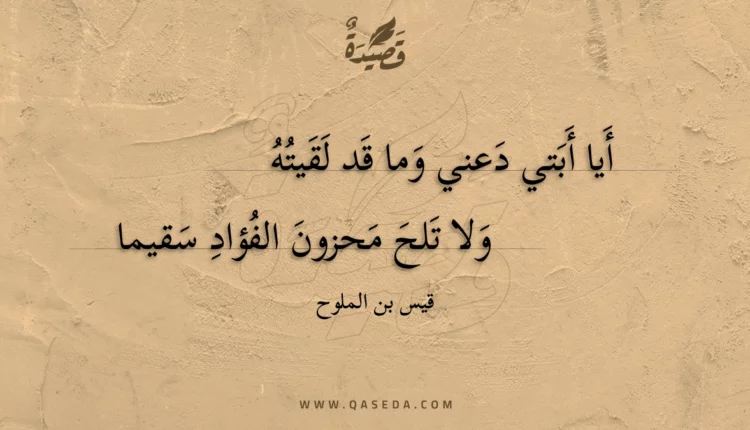 قَصِيدَةٌ
أَيا أَبَتي دَعني وَما قَد لَقَيتُهُ
وَلا تَلحَ مَحزونَ الفُؤادِ سَقيما
قيس بن الملوح
WWW.QASEDA.COM